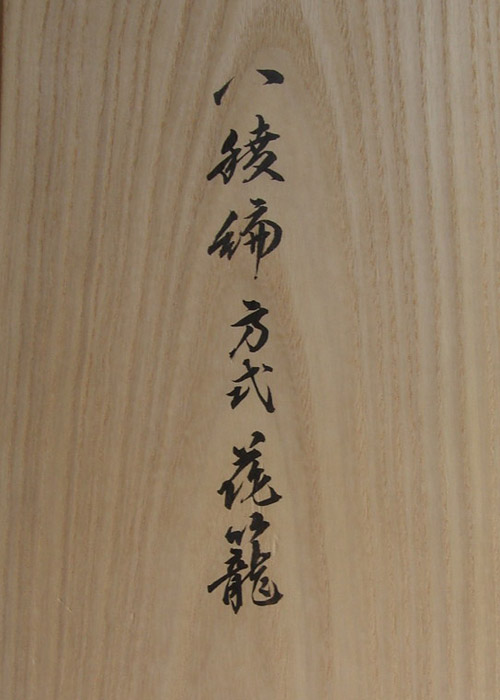 八稜編方式花籠